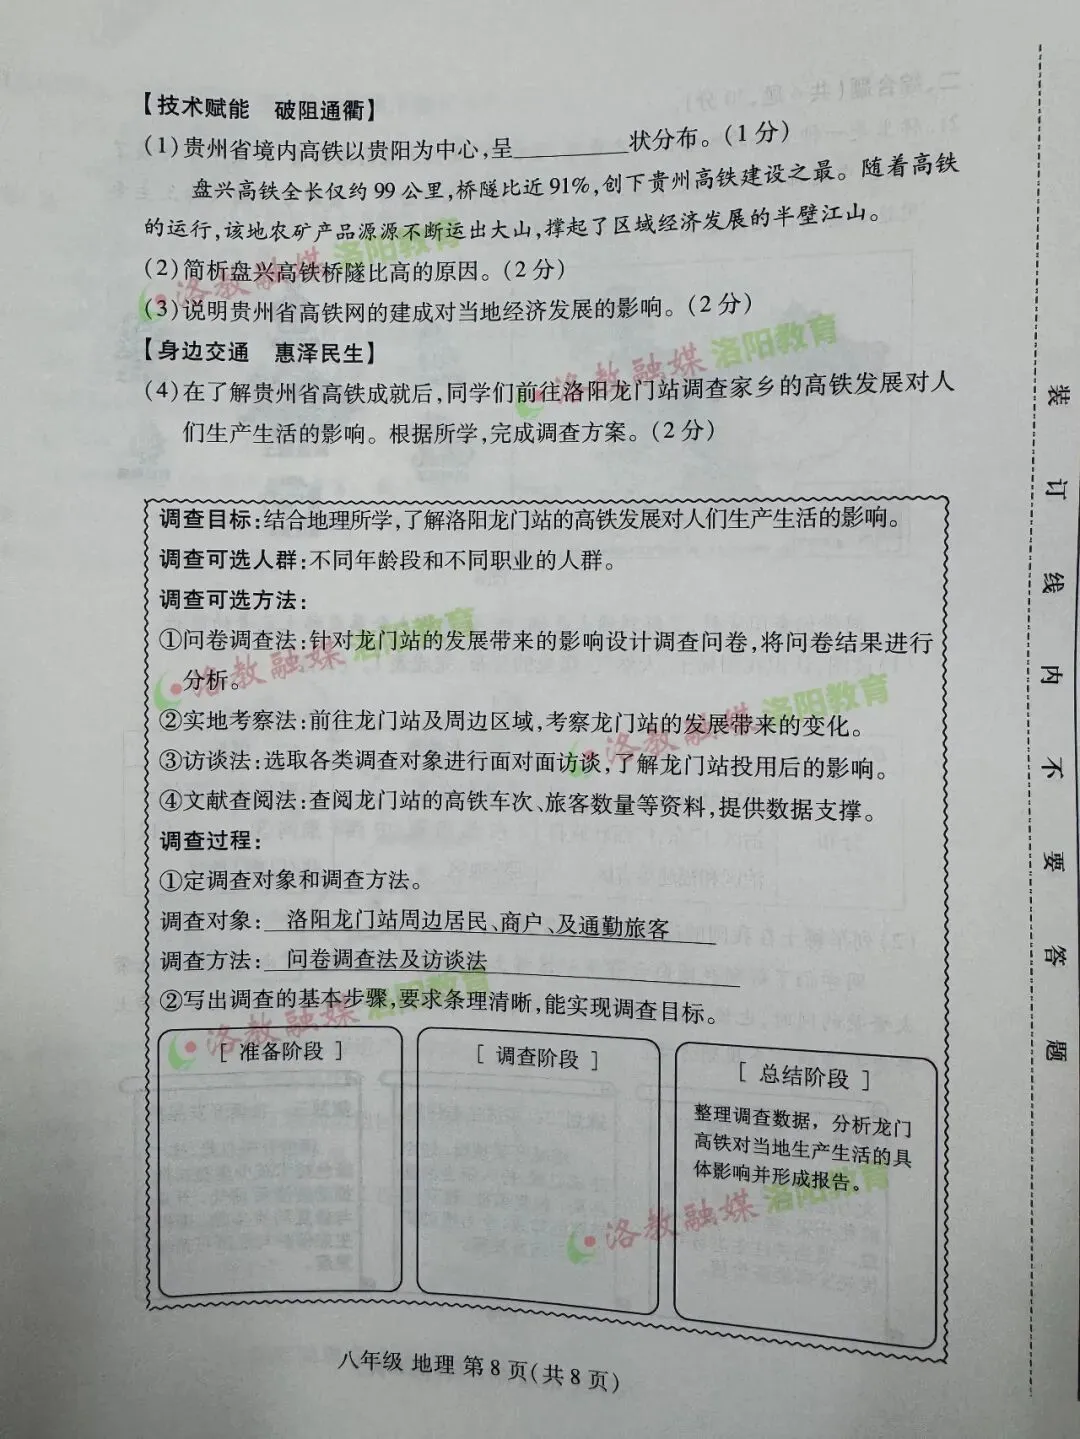 【技术赋能 破阻通衢】
(1)贵州省境内高铁以贵阳为中心,呈________状分布。(1分)
盘兴高铁全长仅约99公里,桥隧比近91%,创下贵州高铁建设之最。随着高铁
的运行,该地农矿产品源源不断运出大山,撑起了区域经济发展的半壁江山。
(2)简析盘兴高铁桥隧比高的原因。(2分)
(3)说明贵州省高铁网的建成对当地经济发展的影响。(2分)
【身边交通 惠泽民生】
(4)在了解贵州省高铁成就后,同学们前往洛阳龙门站调查家乡的高铁发展对人
们生产生活的影响。根据所学,完成调查方案。(2分)
调查目标:结合地理所学,了解洛阳龙门站的高铁发展对人们生产生活的影响。
调查可选人群:不同年龄段和不同职业的人群。
调查可选方法:
①问卷调查法:针对龙门站的发展带来的影响设计调查问卷,将问卷结果进行
分析。
②实地考察法:前往龙门站及周边区域,考察龙门站的发展带来的变化。
③访谈法:选取各类调查对象进行面对面访谈,了解龙门站投用后的影响。
④文献查阅法:查阅龙门站的高铁车次、旅客数量等资料,提供数据支撑。
调查过程:
①定调查对象和调查方法。
调查对象: 洛阳龙门站周边居民、商户、及通勤旅客
调查方法: 问卷调查法及访谈法
②写出调查的基本步骤,要求条理清晰,能实现调查目标。
[ 准备阶段 ]
[ 调查阶段 ]
[ 总结阶段 ]
整理调查数据，分析龙门
高铁对当地生产生活的具
体影响并形成报告。
八年级 地理 第8页(共8页)
装订线内不要答题
洛教融媒 洛阳教育
洛教融媒 洛阳教育
洛教融媒 洛阳教育
洛教融媒 洛阳教育
洛教融媒 洛阳教育
洛教融媒 洛阳教育